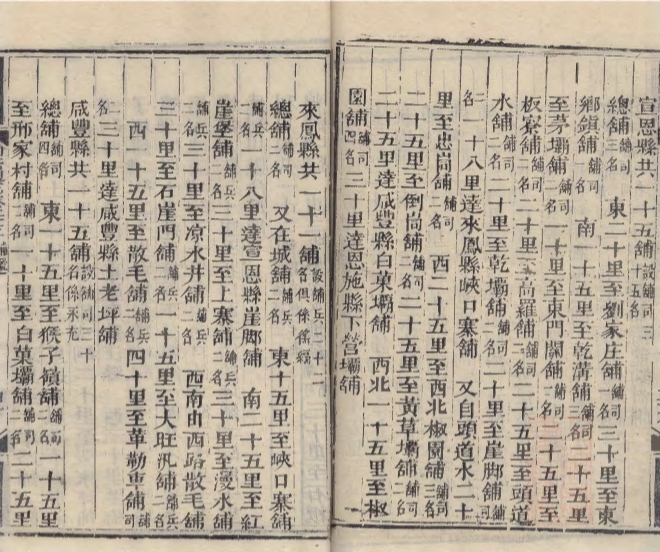 宣恩縣共一十五舖設舖司三十五名
總舖舖司三名 東二十里至劉家庄舖舖司一名三十里至東
鄉鎮舖舖司一名 南一十五里至乾溝舖舖司三名二十五里
至茅壩舖舖司二名二十里至東門關舖舖司一名二十五里至
板寮舖舖司二名二十里至高羅舖舖司二名二十五里至頭道
水舖舖司二名二十里至乾壩舖舖司二名二十里至崖脚舖舖司二
名一十八里達來鳳縣峽口寨舖 又自頭道水二十
里至忠峝舖舖司二名 西二十五里至西北椒園舖舖司三名
二十五里至倒峝舖舖司二名二十五里至黃草壩舖舖司二名
二十五里達咸豐縣白菓壩舖 西北一十五里至椒
園舖舖司四名三十里達恩施縣下營壩舖
來鳳縣共一十一舖設舖兵二十二名俱係徭編
總舖舖兵二名 又在城舖舖兵二名 東十五里至峽口寨舖
舖兵二名一十八里達宣恩縣崖脚舖 南二十五里至紅
崖堡舖舖兵二名三十里至上寨舖舖兵二名三十里至漫水舖
舖兵二名三十里至凉水井舖舖兵二名 西南由西路散毛舖
三十里至石崖門舖舖兵二名一十五里至大旺汛舖舖兵二名
西一十五里至散毛舖舖兵二名四十里至革勒車舖舖兵二
名三十里達咸豐縣土老坪舖
咸豐縣共一十五舖設舖司三十名係永充
總舖舖司四名 東一十五里至猴子嶺舖舖司二名一十五里
至邢家村舖舖司二名一十里至白菓壩舖舖司二名二十五里